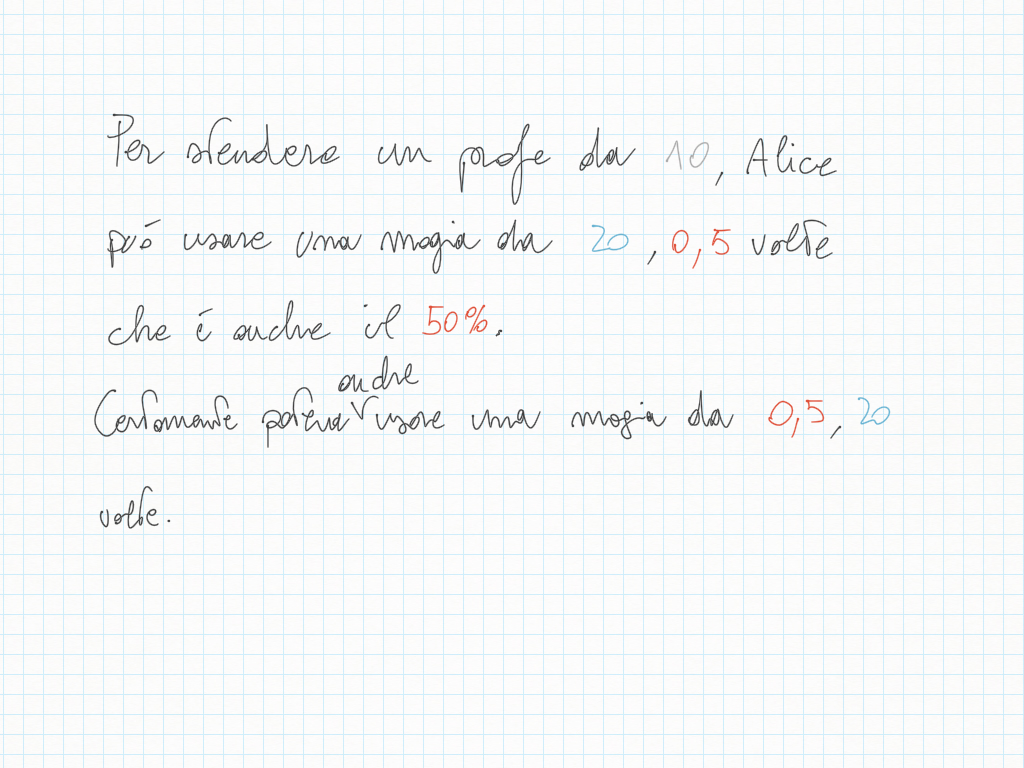 Per stendere un profe da 10, Alice
può usare una magia da 20, 0,5 volte
che è anche il 50%.
Certamente poteva anche usare una magia da 0,5, 20
volte.